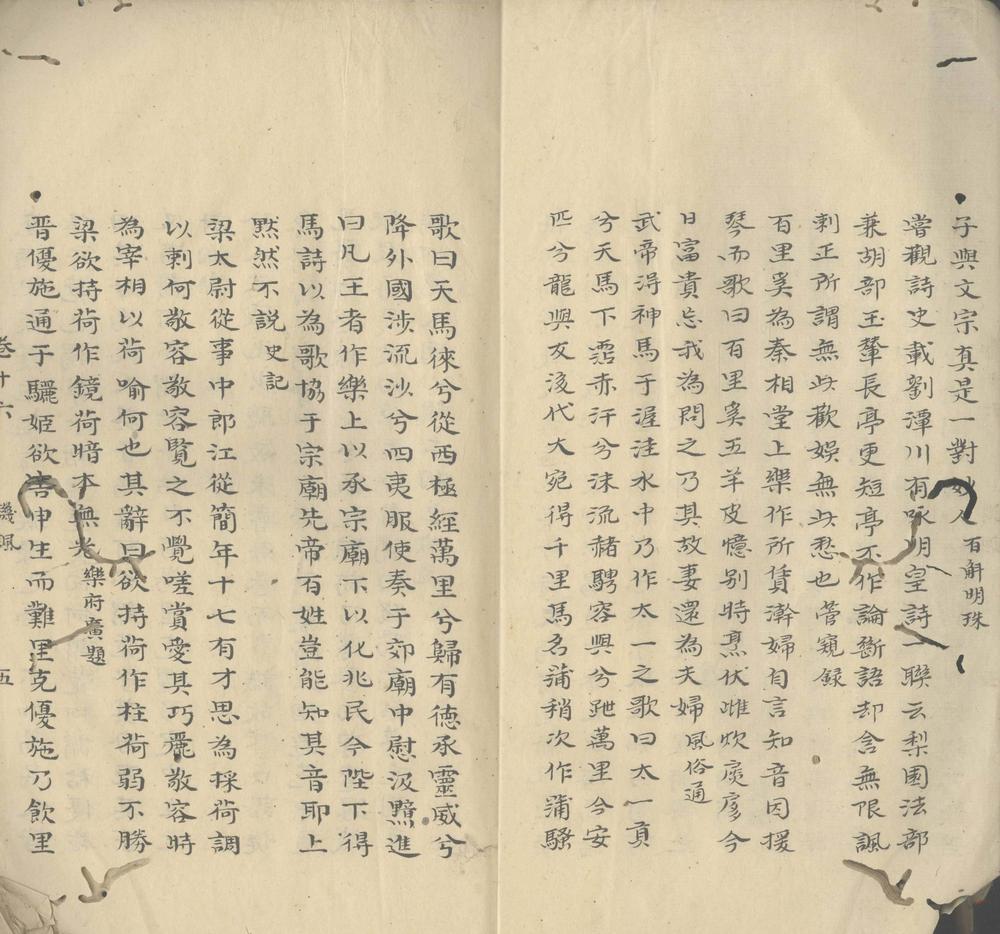 子與文宗真是一對妙人 百斛明珠
嘗觀詩史載劉潭川有咏明皇詩一聯云梨園法部
兼胡部玉輦長亭更短亭不作論斷語却含無限諷
刺正所謂無此歡娛無此愁也 管窺録
百里奚為秦相堂上樂作所賃澣婦自言知音因援
琴而歌曰百里奚五羊皮憶别時烹伏雌炊扊扅今
日富貴忘我為問之乃其故妻還為夫婦 風俗通
武帝得神馬于渥洼水中乃作太一之歌曰太一貢
兮天馬下霑赤汗兮沫流赭騁容與兮跇萬里今安
匹兮龍與友後代大宛得千里馬名蒲稍次作蒲騷
歌曰天馬徠兮從西極經萬里兮歸有德承靈威兮
降外國涉流沙兮四夷服使奏于郊廟中尉汲黯進
曰凡王者作樂上以承宗廟下以化兆民今陛下得
馬詩以為歌協于宗廟先帝百姓豈能知其音耶上
黙然不説 史記
梁太尉從事中郎江從簡年十七有才思為採荷調
以刺何敬容敬容覽之不覺嗟賞愛其巧麗敬容時
為宰相以荷喻何也其辭曰欲持荷作柱荷弱不勝
梁欲持荷作鏡荷暗本無光 樂府廣題
晋優施通于驪姬欲害申生而難里克優施乃飲里
卷十六 譏諷 五